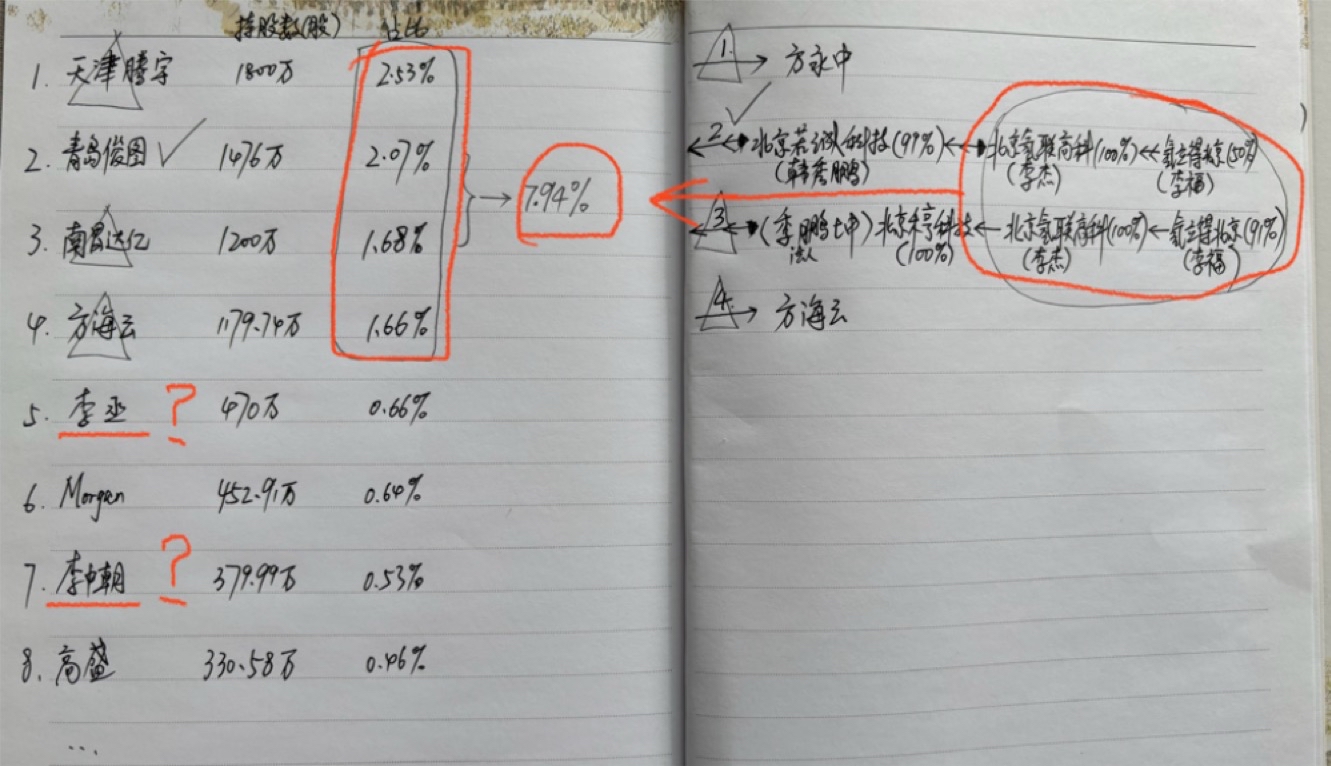 持股数(股) 占比
1. 天津腾宇 1800万 2.53%
2. 青岛俊图 1476万 2.07%
3. 南昌达亿 1200万 1.68%
7.94%
4. 方海云 1179.74万 1.66%
5. 李丞 ? 470万 0.66%
6. Morgan 452.91万 0.64%
7. 李中朝 ? 379.99万 0.53%
8. 高盛 330.58万 0.46%
...
1. 方永中
2 北京若诚科技(99%) 北京氢联高科(100%) 氢立得北京(50%)
(韩秀鹏) (李杰) (李福)
3 (季鹏 法人) 北京禾亨科技(100%) 北京氢联高科(100%) 氢立得北京(91%)
(李杰) (李福)
4. 方海云